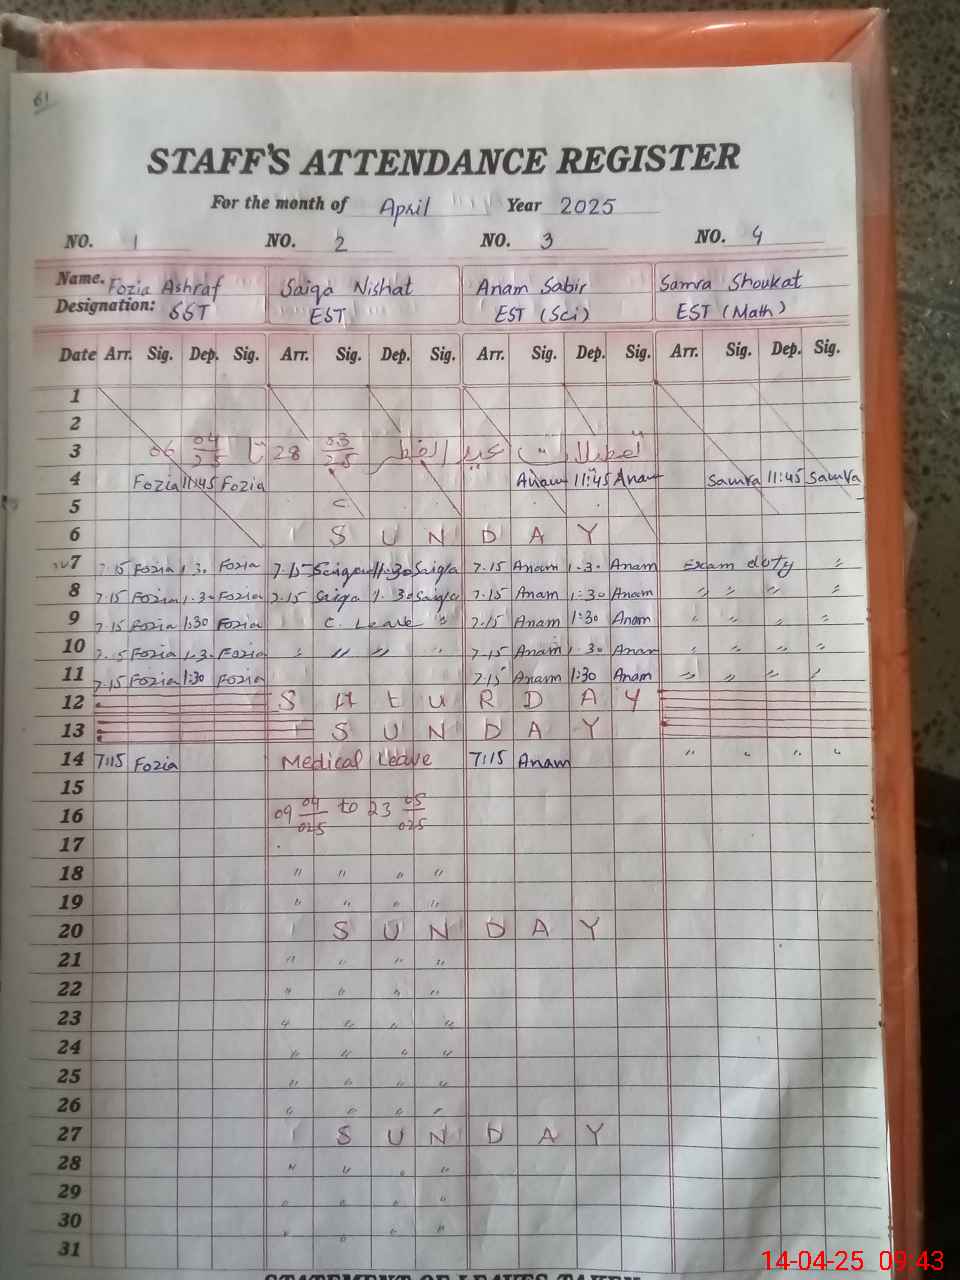 61
STAFF'S ATTENDANCE REGISTER
For the month of April Year 2025
NO. 1 NO. 2 NO. 3 NO. 4
Name. Fozia Ashraf Saiqa Nishat Anam Sabir Samra Shoukat
Designation: SST EST EST (Sci) EST (Math)
Date Arr. Sig. Dep. Sig. Arr. Sig. Dep. Sig. Arr. Sig. Dep. Sig. Arr. Sig. Dep. Sig.
1
2
3 تعطیلات عید الفطر 28 03/25 تا 06 04/25
4 Fozia 11:45 Fozia Anam 11:45 Anam Samra 11:45 Samra
5
6 SUNDAY
7 7.15 Fozia 1.3. Fozia 7.15 Saiqa 11.30 Saiqa 7.15 Anam 1.3. Anam Exam duty "
8 7.15 Fozia 1.30 Fozia 7.15 Saiqa 1.30 Saiqa 7.15 Anam 1:30 Anam " " " "
9 7.15 Fozia 1:30 Fozia C. Leave " 7.15 Anam 1:30 Anam " " " "
10 7.15 Fozia 1.3. Fozia " " " " 7.15 Anam 1.30 Anam " " " "
11 7.15 Fozia 1:30 Fozia 7.15 Anam 1:30 Anam " " " "
12 SAtURDAY
13 SUNDAY
14 7:15 Fozia Medical Leave 7:15 Anam " " " "
15
16 09 04/025 to 23 05/025
17
18 " " " "
19 " " " "
20 SUNDAY
21 " " " "
22 " " " "
23 " " " "
24 " " " "
25 " " " "
26 " " " "
27 SUNDAY
28 " " " "
29 " " " "
30 " " " "
31
STATEMENT OF LEAVES TAKEN
14-04-25 09:43